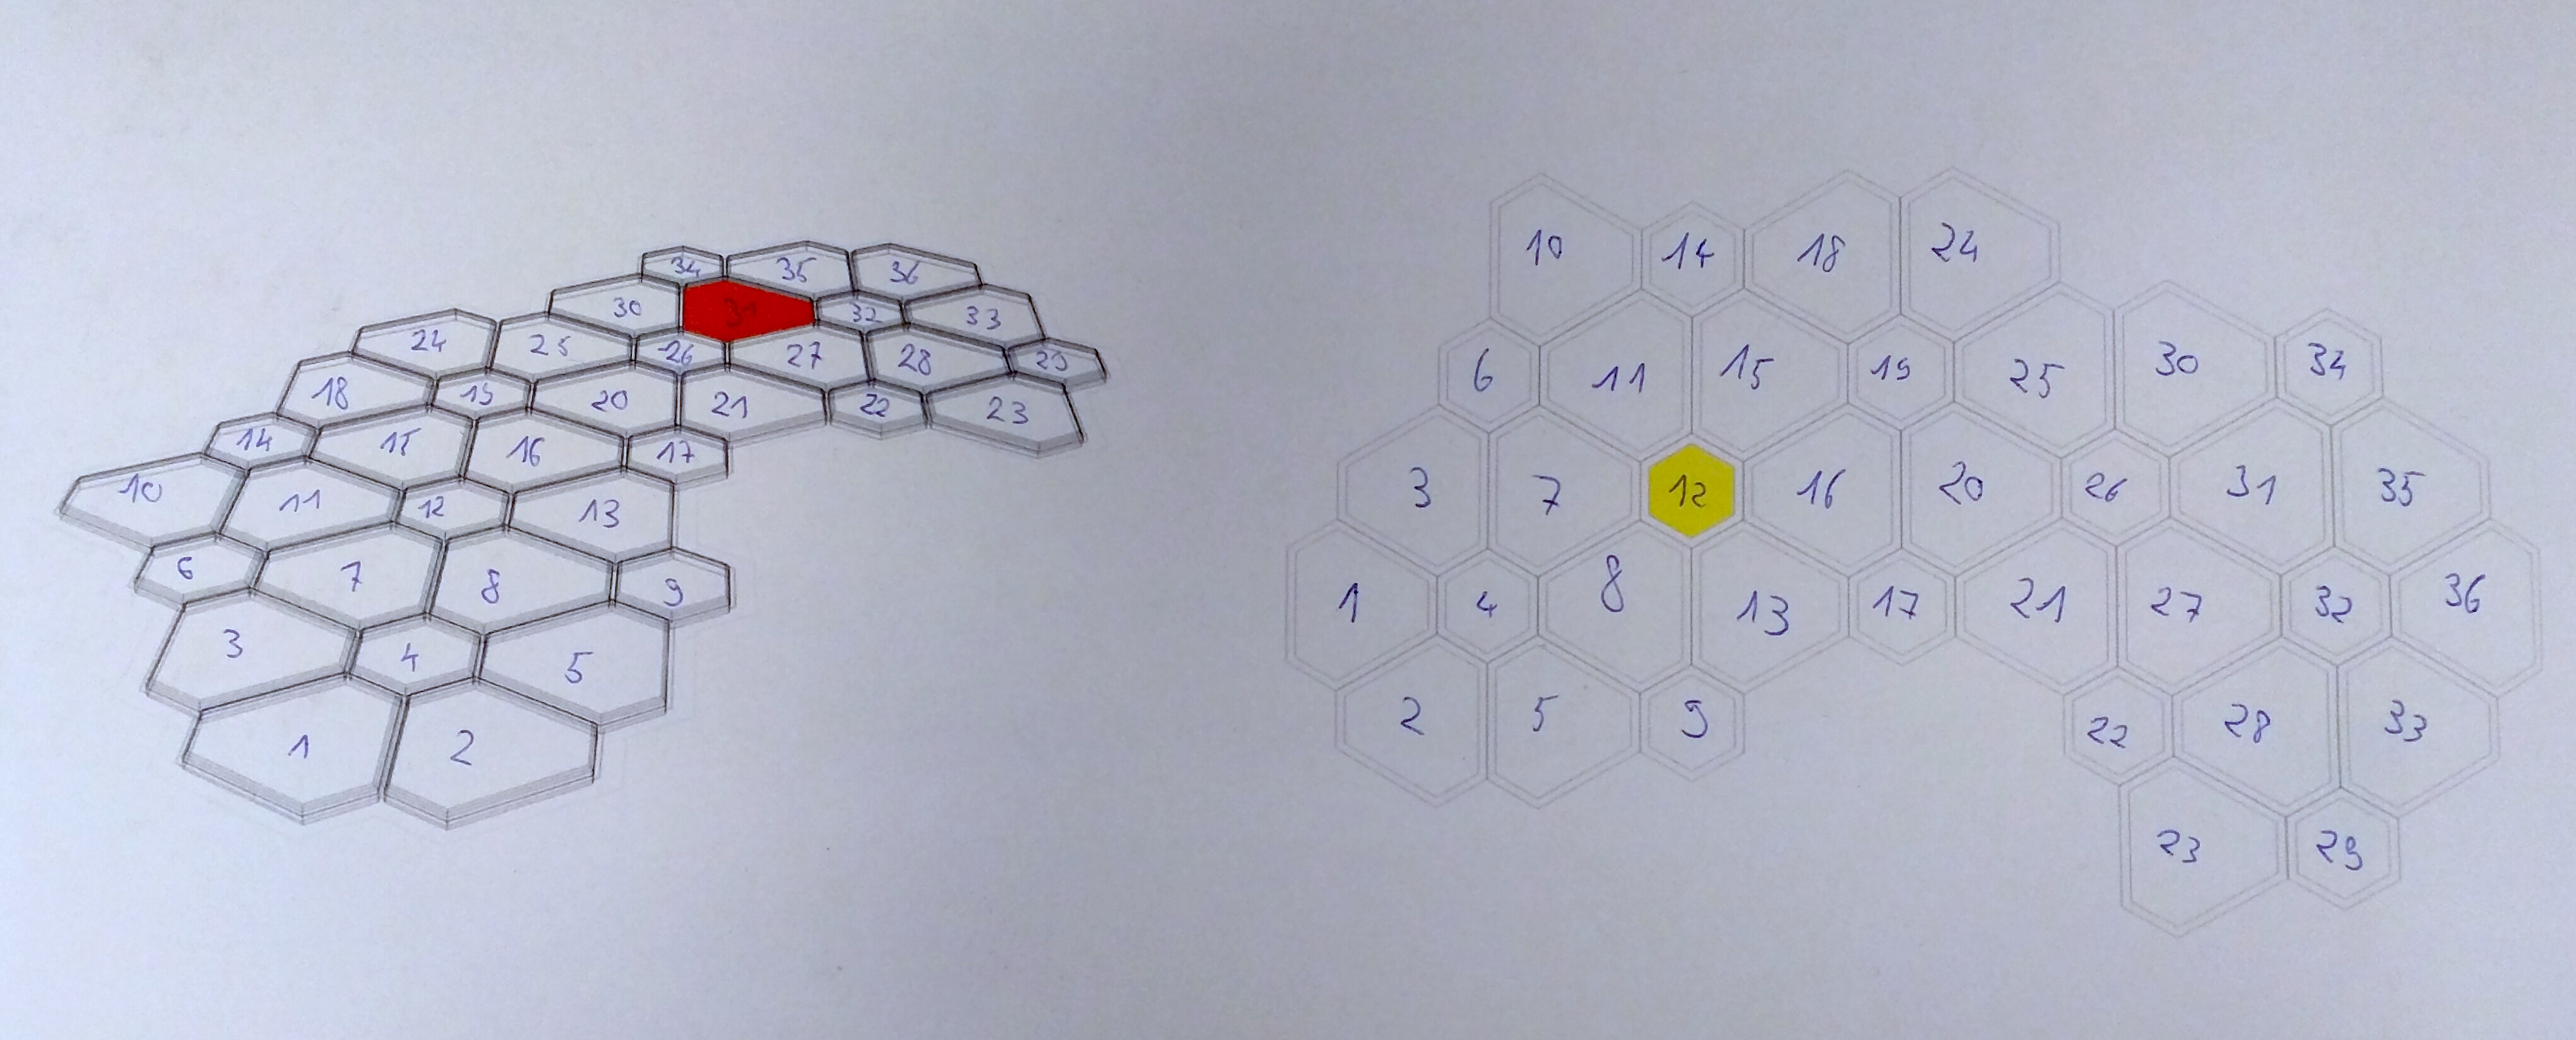 34 35 36
30 31 32 33
24 25 26 27 28 29
18 19 20 21 22 23
14 15 16 17
10 11 12 13
6 7 8 9
3 4 5
1 2
10 14 18 24
6 11 15 19 25 30 34
3 7 12 16 20 26 31 35
1 4 8 13 17 21 27 32 36
2 5 9 22 28 33
23 29